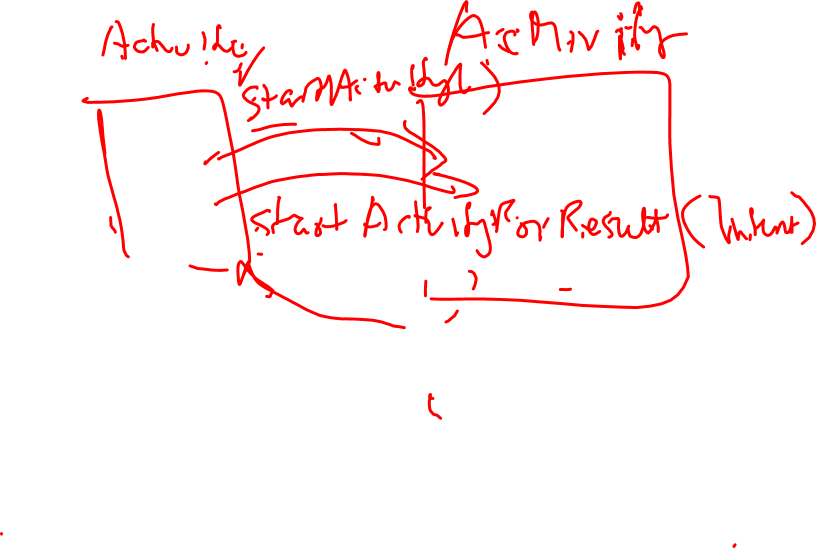 Activity
Activity
startActivity()
startActivityForResult (Intent)